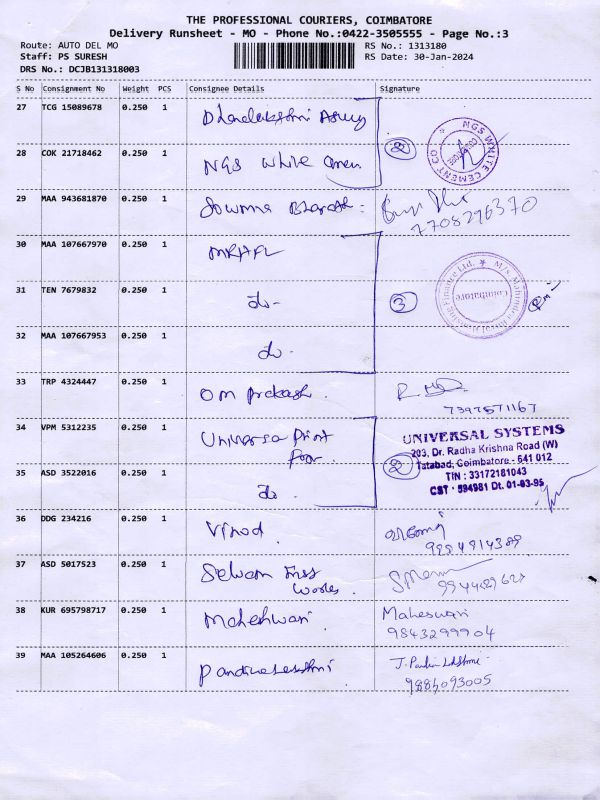 THE PROFESSIONAL COURIERS, COIMBATORE
Delivery Runsheet - MO - Phone No.:0422-3505555 - Page No.:3
Route: AUTO DEL MO
Staff: PS SURESH
DRS No.: DCJB131318003
RS No.: 1313180
RS Date: 30-Jan-2024
S No Consignment No Weight PCS Consignee Details Signature
27 TCG 15089678 0.250 1
28 COK 21718462 0.250 1 NGS White
2
NGS WHITE CEMENT CO
29 MAA 943681870 0.250 1 Sowma Bharath
7708296370
30 MAA 107667970 0.250 1 MRHFL
31 TEN 7679832 0.250 1 do-
3
Coimbatore
32 MAA 107667953 0.250 1 do-
33 TRP 4324447 0.250 1 Om Prakash.
7397571167
34 VPM 5312235 0.250 1 Universa Print
2
UNIVERSAL SYSTEMS
203, Dr. Radha Krishna Road (W)
Tatabad, Coimbatore - 641 012
TIN : 33172181043
CST : 594981 Dt. 01-03-95
35 ASD 3522016 0.250 1 do.
36 DDG 234216 0.250 1 Vinod.
9994814389
37 ASD 5017523 0.250 1 Selvam Engg
Works.
38 KUR 695798717 0.250 1 Maheshwari
Maheswari
9843299904
39 MAA 105264606 0.250 1 Pandiselakshmi
9885093005